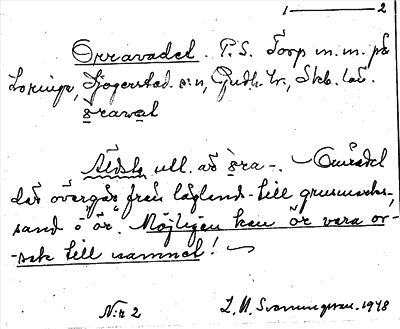 1 — 2
Orravadet. P.S. Torp m.m. på
Loringe, Sjögerstad s:n, Gudh. hr, Skb. län.
òrawat
Äldsta utt. är òra-. Området
där övergår från lågland till grusmarks-
sand o ör. Möjligen kan ör vara or-
-sak till namnet!
N:r 2 L. M. Svenningsson. 1948